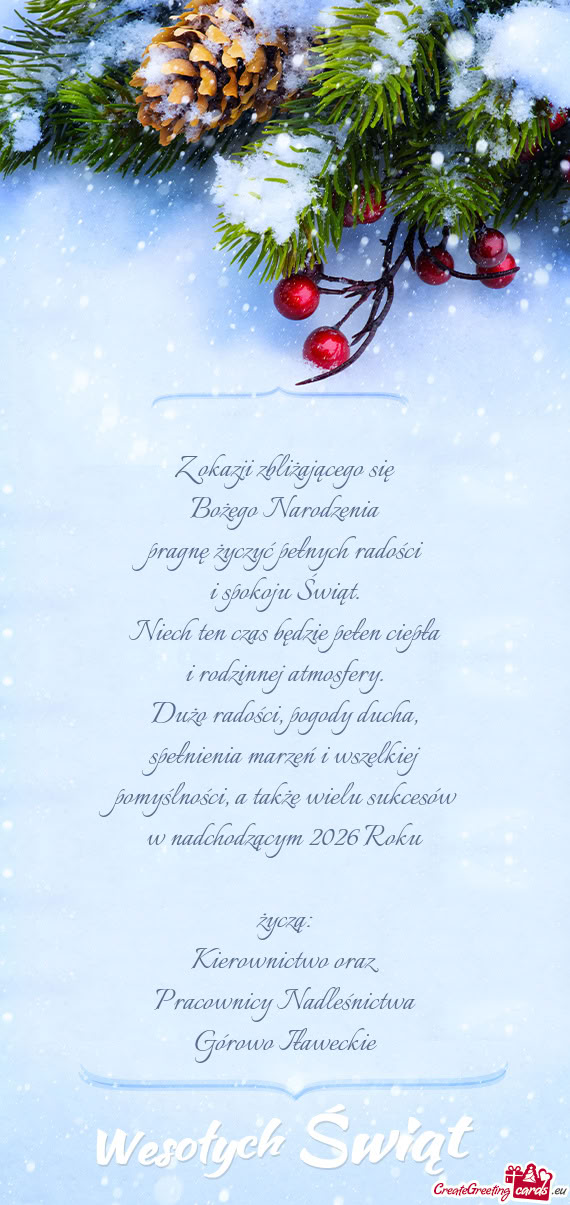 Z okazji zbliżającego się
Bożego Narodzenia
pragnę życzyć pełnych radości
i spokoju Świąt.
Niech ten czas będzie pełen ciepła
i rodzinnej atmosfery.
Dużo radości, pogody ducha,
spełnienia marzeń i wszelkiej
pomyślności, a także wielu sukcesów
w nadchodzącym 2026 Roku
życzą:
Kierownictwo oraz
Pracownicy Nadleśnictwa
Górowo Iławeckie
Wesołych Świąt
CreateGreeting cards .eu